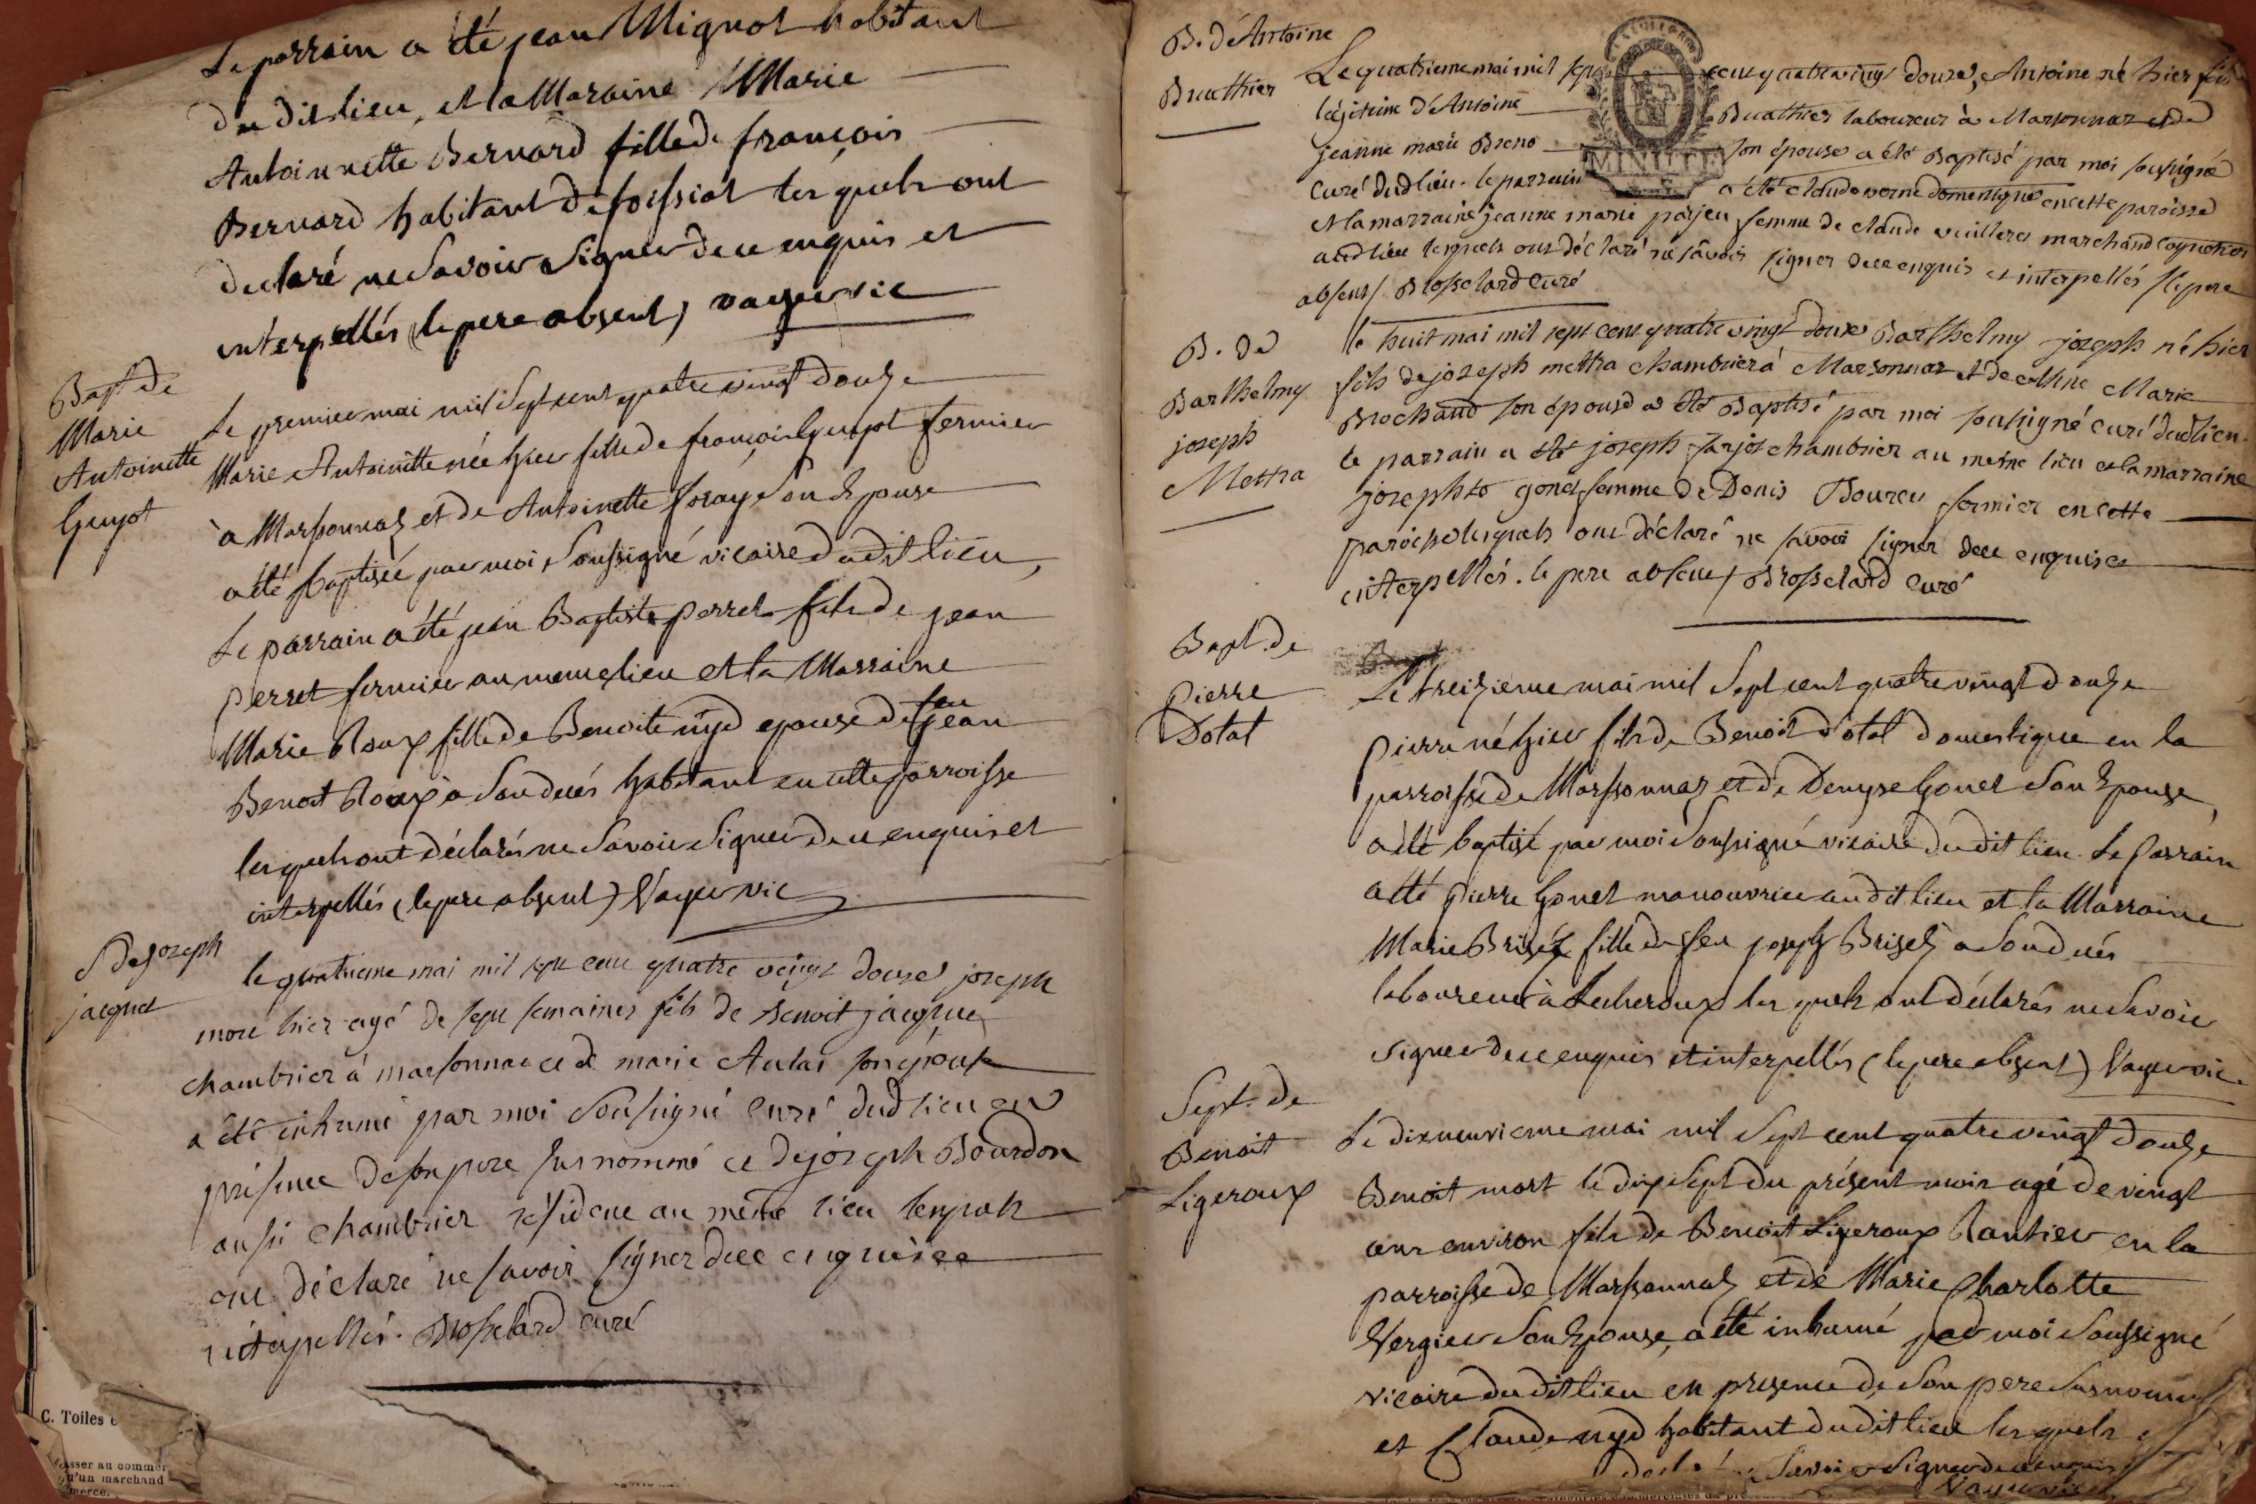 Le parrain a été jean Mignot habitant
du dit lieu, et la Maraine Marie
Antoinnette Bernard fille de françois
Bernard habitant de foissiat lesquels ont
declaré ne Savoir Signer de ce enquis et
interpellés (le pere absent) vayer vic
Bapt. de
Marie
Antoinette
Guyot
Le premier mai mil Sept cent quatre vingt douze
Marie Antoinette née hier fille de françois Guyot fermier
à Marsonnas et de Antoinette foray Son Epouse
a été baptisée par moi Soussigné vicaire du dit lieu,
Le parrain a été jean Baptiste perret fils de jean
perret fermier au meme lieu et la Marraine
Marie Roux fille de Benoite nyd epouse de feu jean
Benoit Roux à Son decés habitant en cette parroisse
lesquels ont déclarés ne Savoir Signer de ce enquis et
interpellés (le pere absent) Vayer vic
S de joseph
jacquet
le quatrieme mai mil sept cent quatre vingt douze joseph
mort hier agé de sept semaines fils de Benoit jacquet
chambrier à marsonnas et de marie son épouse
a été inhumé par moi Soussigné curé dud lieu en
présence de son pere susnommé et de joseph Bourdon
aussi chambrier résident au même lieu lesquels
ont déclaré ne savoir signer de ce enquis et
interpellés. Brosselard curé
C. Toiles
asser au commer
u'un marchand
merce.
B. d'Antoine
Buathier
Le quatrieme mai mil sept cent quatre vingt douze, Antoine né hier fils
légitime d'Antoine Buathier laboureur à Marsonnas et de
jeanne marie Breno son épouse a été Baptisé par moi soussigné
MINUTE
Curé dud lieu. le parrain a été claude verne domestique en cette paroisse
et la marraine jeanne marie parjeu femme de claude vuilleres marchand
aud lieu lesquels ont déclaré ne sàvoir signer de ce enquis et interpellés /le pere
absent/ Brosselard Curé
B. de
Barthelmy
joseph
Mettra
le huit mai mil sept cent quatre vingt douze Barthelmy joseph né hier
fils de joseph mettra chambrier à Marsonnas et de Marie
Brochand son épouse a été Baptisé par moi soussigné curé dud lieu.
le parrain a été joseph farjot chambrier au même lieu et la marraine
josephte gonet femme de Denis Boureu fermier en cette
paroisse lesquels ont déclaré ne savoir signer de ce enquis et
interpellés. le pere absent/ Brosselard Curé
Bapt. de
Pierre
Dotal
Le treizieme mai mil Sept cent quatre vingt douze
pierre né hier fils de Benoit dotal domestique en la
parroisse de Marsonnas et de Denyse Gonet Son Epouse
a été baptisé par moi Soussigné vicaire du dit lieu. Le parrain
a été pierre Gonet manouvrier au dit lieu et la Marraine
Marie Briset fille de feu joseph Briset a Son decés
laboureur à Lecheroux lesquels ont déclarés ne Savoir
Signer de ce enquis et interpellés (le pere absent) Vayer vic.
Sept. de
Benoit
Ligeroux
Le dixneuvieme mai mil Sept cent quatre vingt douze
Benoit mort le dixsept du présent mois agé de vingt
ans environ fils de Benoit Ligeroux Rantier en la
parroisse de Marsonnas et de Marie Charlotte
Vergier Son Epouse, a été inhumé par moi Soussigné
vicaire du dit lieu en presence de Son pere Susnommé
et Claude nyd habitant du dit lieu lesquels
Savoir Signer de ce enquis
Vayer vic